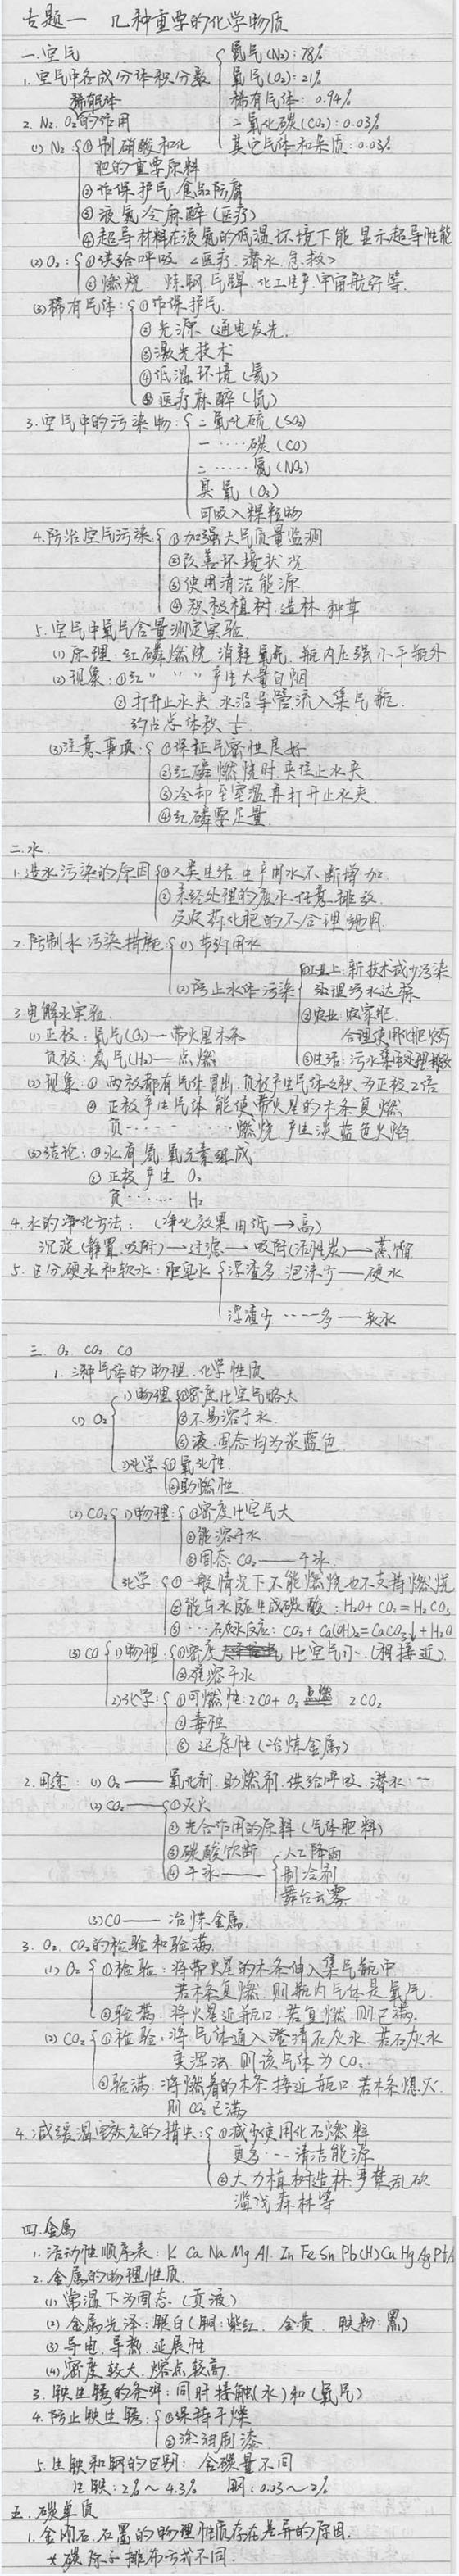 专题一 几种重要的化学物质
一.空气
1.空气中各成分体积分数 { 氮气(N₂): 78%
氧气(O₂): 21%
稀有气体: 0.94%
二氧化碳(CO₂): 0.03%
其它气体和杂质: 0.03%
稀有气体
2. N₂. O₂的作用
(1) N₂ { ①制硝酸和化
肥的重要原料
②作保护气.食品防腐
③液氮冷麻醉(医疗)
④超导材料在液氮的低温环境下能显示超导性能
(2) O₂: { ①供给呼吸 <医疗.潜水.急救>
②燃烧. 炼钢.气焊.化工生产.宇宙航行等.
(3)稀有气体: { ①作保护气.
②光源.(通电发光.
③激光技术
④低温环境(氦)
⑤医疗麻醉(氙)
3.空气中的污染物: { 二氧化硫(SO₂)
一·····碳(CO)
二·····氮(NO₂)
臭氧(O₃)
可吸入颗粒物
4.防治空气污染. { ①加强大气质量监测
②改善环境状况
③使用清洁能源
④积极植树.造林.种草
5.空气中氧气含量测定实验
(1)原理:红磷燃烧.消耗氧气.瓶内压强小于瓶外.
(2)现象:①红〃 〃 〃产生大量白烟
②打开止水夹.水沿导管流入集气瓶.
约占总体积 1/5
(3)注意事项: { ①保证气密性良好.
②红磷燃烧时.夹住止水夹
③冷却至室温再打开止水夹.
④红磷要足量.
二.水.
1.造水污染的原因 { ①人类生活.生产用水不断增加
②未经处理的废水任意排放.
及农药化肥的不合理施用.
2.防制水污染措施 { (1)节约用水
(2)防止水体污染 { ①工业上:新技术减少污染
处理污水达标
②农业:农家肥.
合理使用化肥农药
③生活:污水集中处理排放
3.电解水实验.
(1)正极:氧气(O₂)—带火星木条
负极:氢气(H₂)—点燃
(2)现象:①两极都有气体冒出.负极产生气体体积为正极2倍
②正极产生气体能使带火星的木条复燃
负······燃烧.产生淡蓝色火焰
(3)结论:①水有氢.氧元素组成
②正极产生 O₂
负······ H₂
4.水的净化方法: (净化效果由低→高)
沉淀(静置.吸附)→过滤→吸附(活性炭)→蒸馏
5.区分硬水和软水:肥皂水 { 浮渣多.泡沫少—硬水
浮渣少·····多—软水
三. O₂. CO₂. CO
1.三种气体的物理.化学性质
(1) O₂ { 1)物理 { ①密度比空气略大
②不易溶于水.
③液.固态均为淡蓝色
2)化学 { ①氧化性.
②助燃性.
(2) CO₂ { 1)物理: { ①密度比空气大
②能溶于水.
③固态CO₂——干冰
化学: { ①一般情况下不能燃烧也不支持燃烧
②能与水反应生成碳酸: H₂O+CO₂=H₂CO₃
③····石灰水反应: CO₂+Ca(OH)₂=CaCO₃↓+H₂O
(3) CO { 1)物理: { ①密度比空气小.(相接近)
②难溶于水
2)化学: { ①可燃性: 2CO+O₂ 点燃 2CO₂
②毒性
③还原性(冶炼金属)
2.用途: (1) O₂——氧化剂.助燃剂.供给呼吸.潜水····
(2) CO₂—— { ①灭火
②光合作用的原料(气体肥料)
③碳酸饮料
④干冰—— { 人工降雨
制冷剂
舞台云雾.
(3)CO——冶炼金属.
3. O₂. CO₂的检验和验满.
(1) O₂ { ①检验:将带火星的木条伸入集气瓶中.
若木条复燃.则瓶内气体是氧气.
②验满.将火星近瓶口.若复燃.则已满.
(2) CO₂ { ①检验:将气体通入澄清石灰水.若石灰水
变浑浊.则该气体为CO₂.
②验满.将燃着的木条接近瓶口.若木条熄灭.
则CO₂已满
4.减缓温室效应的措失: { ①减少使用化石燃料
更多····清洁能源
②大力植树造林.严禁乱砍
滥伐森林等
四.金属
1.活动性顺序表: K Ca Na Mg Al. Zn Fe Sn Pb(H)Cu Hg Ag Pt A
2.金属的物理性质.
(1)常温下为固态.(贡液)
(2)金属光泽:银白(铜:紫红. 金黄. 铁粉:黑)
(3)导电.导热.延展性
(4)密度较大.熔点较高.
3.铁生锈的条件:同时接触(水)和(氧气)
4.防止铁生锈: { ①保持干燥
②涂油刷漆
5.生铁和钢的区别: 含碳量不同
生铁:2%~4.3% 钢:0.03~2%
五.碳单质
1.金刚石.石墨的物理性质存在差异的原因.
碳原子排布方式不同.